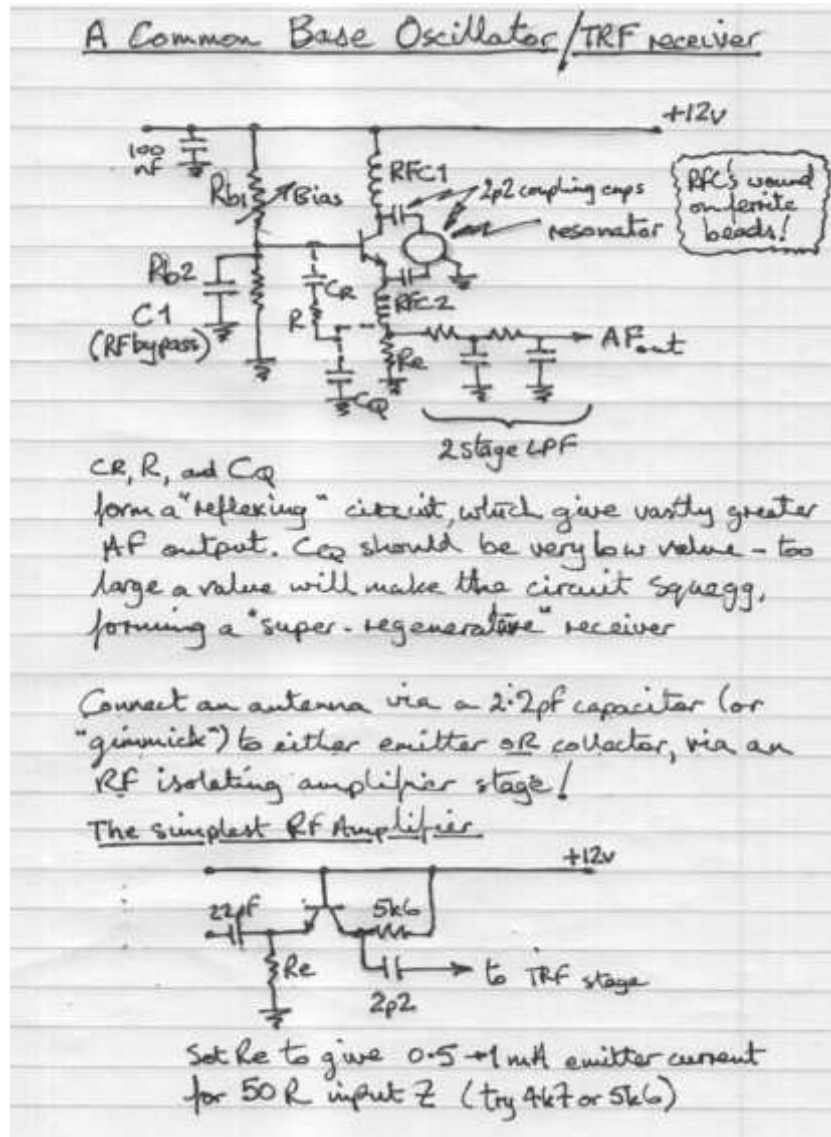 A Common Base Oscillator/TRF receiver
+12v
100 nf
Rb1
Bias
RFC1
2p2 coupling caps
resonator
RFC's wound
on ferrite
beads!
Rb2
C1
(RF bypass)
CR
R
RFC2
Re
AF out
CQ
2 stage LPF
CR, R, and CQ
form a "reflexing" circuit, which give vastly greater
AF output. CQ should be very low value - too
large a value will make the circuit squegg,
forming a "super-regenerative" receiver
Connect an antenna via a 2.2pf capacitor (or
"gimmick") to either emitter OR collector, via an
RF isolating amplifier stage!
The simplest RF Amplifier
+12v
22pF
5k6
Re
2p2
to TRF stage
Set Re to give 0.5→1mA emitter current
for 50R input Z (try 4k7 or 5k6)